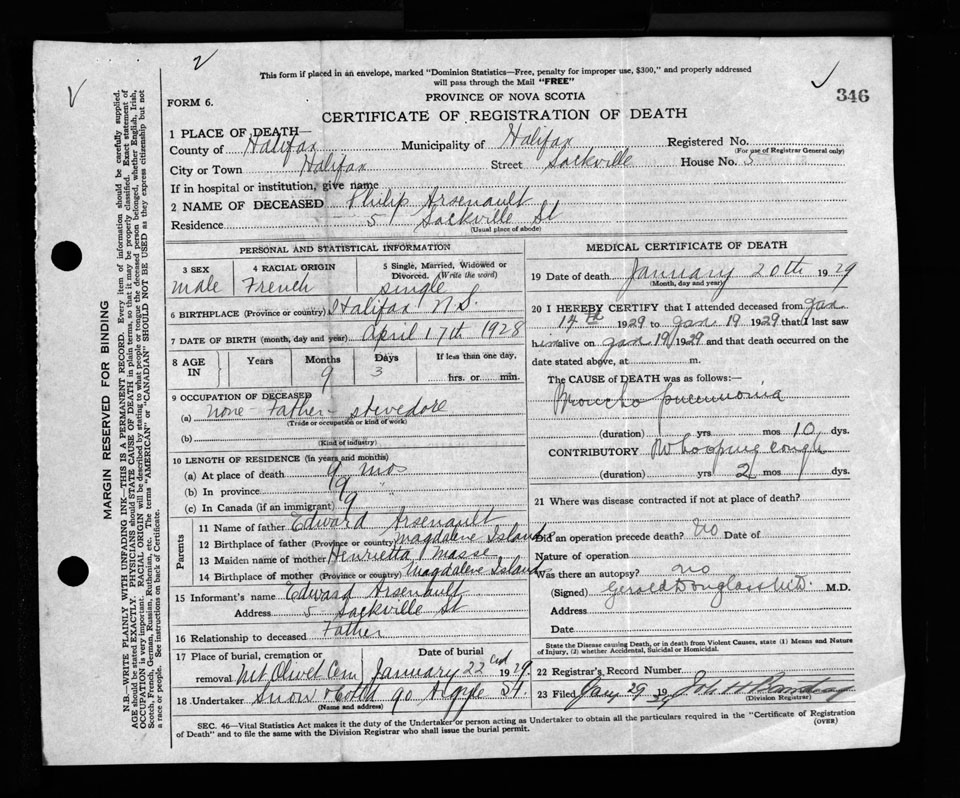 This form if placed in an envelope, marked "Dominion Statistics—Free, penalty for improper use, $300," and properly addressed
will pass through the Mail "FREE"
346
FORM 6.
PROVINCE OF NOVA SCOTIA
CERTIFICATE OF REGISTRATION OF DEATH
1 PLACE OF DEATH—
County of Halifax Municipality of Halifax Registered No.
(For use of Registrar General only)
City or Town Halifax Street Sackville House No. 5
If in hospital or institution, give name
2 NAME OF DECEASED Philip Arsenault
Residence 5 Sackville St
(Usual place of abode)
PERSONAL AND STATISTICAL INFORMATION
3 SEX 4 RACIAL ORIGIN 5 Single, Married, Widowed or
Divorced. (Write the word)
male French single
6 BIRTHPLACE (Province or country) Halifax N S.
7 DATE OF BIRTH (month, day and year) April 17th 1928
8 AGE IN Years Months Days If less than one day,
9 3 hrs. or min.
9 OCCUPATION OF DECEASED
(a) none Father stevedore
(Trade or occupation or kind of work)
(b)
(Kind of industry)
10 LENGTH OF RESIDENCE (in years and months)
(a) At place of death 9 mos
(b) In province 9 "
(c) In Canada (if an immigrant) 9
Parents
11 Name of father Edward Arsenault
12 Birthplace of father (Province or country) Magdalene Islands
13 Maiden name of mother Henrietta Masse
14 Birthplace of mother (Province or country) Magdalene Island
15 Informant's name Edward Arsenault
Address 5 Sackville St
16 Relationship to deceased Father
17 Place of burial, cremation or Date of burial
removal Mt Olivet Cem January 22nd 1929
18 Undertaker Snow & Co Ltd 90 Argyle St.
(Name and address)
MEDICAL CERTIFICATE OF DEATH
19 Date of death January 20th 1929
(Month, day and year)
20 I HEREBY CERTIFY that I attended deceased from Jan
14th 1929 to Jan 19 1929 that I last saw
him alive on Jan 19 1929 and that death occurred on the
date stated above, at m.
The CAUSE of DEATH was as follows:—
Broncho pneumonia
(duration) yrs mos 10 dys.
CONTRIBUTORY Whooping cough
(duration) yrs 2 mos dys.
21 Where was disease contracted if not at place of death?
Did an operation precede death? no Date of
Nature of operation
Was there an autopsy? no
(Signed) Gerald Douglass M.D. M.D.
Address
Date
State the Disease causing Death, or in death from Violent Causes, state (1) Means and Nature
of Injury, (2) whether Accidental, Suicidal or Homicidal.
22 Registrar's Record Number
23 Filed Jany 29 1929
(Division Registrar)
SEC. 46—Vital Statistics Act makes it the duty of the Undertaker or person acting as Undertaker to obtain all the particulars required in the "Certificate of Registration
of Death" and to file the same with the Division Registrar who shall issue the burial permit.
(OVER)
MARGIN RESERVED FOR BINDING
N.B.—WRITE PLAINLY WITH UNFADING INK—THIS IS A PERMANENT RECORD. Every item of information should be carefully supplied.
AGE should be stated EXACTLY. PHYSICIANS should STATE CAUSE OF DEATH in plain terms, so that it may be properly classified. Exact statement of
OCCUPATION is very important. RACIAL ORIGIN will be described by stating to what people or tongue the deceased person belonged, whether English, Irish,
Scotch, French, German, Russian, Ruthenian, etc. The terms "AMERICAN" or "CANADIAN" SHOULD NOT BE USED as they express citizenship but not
a race or people. See instructions on back of Certificate.